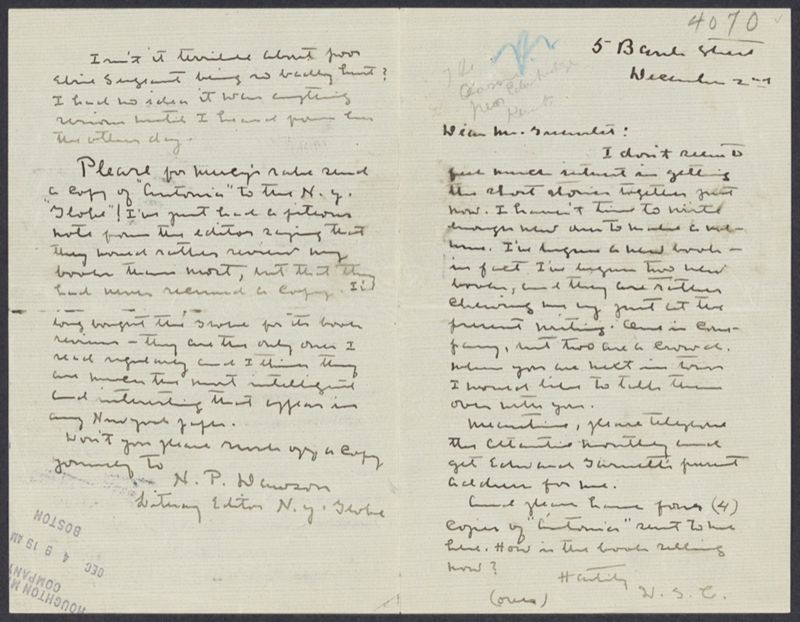 4070
5 Bank Street
December 2nd
The Classic
near
Kent
Dear Mr. Greenslet:
I don't seem to
feel much interest in getting
the short stories together just
now. I haven't time to write
enough new ones to make a vol-
ume. I've begun a new book -
in fact I've begun two new
books, and they are rather
chewing me up just at the
present writing. One is com-
pany, but two are a crowd.
When you are next in town
I would like to talk them
over with you.
Meantime, please telephone
the Atlantic Monthly and
get Edward Garnett's present
address for me.
And please have four (4)
copies of "Antonia" sent to me
here. How is the book selling
now?
Hastily
W. S. C.
(over)
Isn't it terrible about poor
Elsie Sergeant being so badly hurt?
I had no idea it was anything
serious until I heard from her
the other day.
Please for mercy's sake send
a copy of "Antonia" to the N. Y.
"Globe"! I've just had a piteous
note from the editor saying that
they would rather review my
book than most, but that they
had never received a copy. I've
long bought the Globe for its book
reviews - they are the only ones I
read regularly and I think they
are much the most intelligent
and interesting that appear in
any New York paper.
Won't you please rush off a copy
yourself to
N. P. Dawson
Literary Editor N. Y. Globe
HOUGHTON MI
COMPANY
DEC 4 9 19 AM
BOSTON